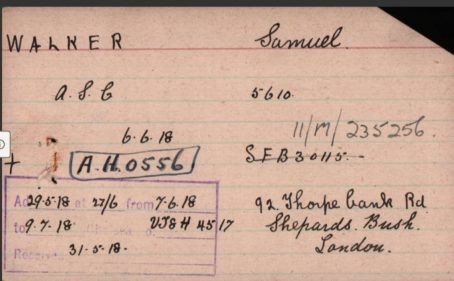 WALKER Samuel.
A.S.C 5610.
6.6.18 11/M/235256.
+ A.H.0556 S.F.B 30115.-
29-5-18 at 27/6 from 7-6.18 92 Thorpe bank Rd
to 9.7-18 45 17 Shepards. Bush.
Received 31-5-18. London.